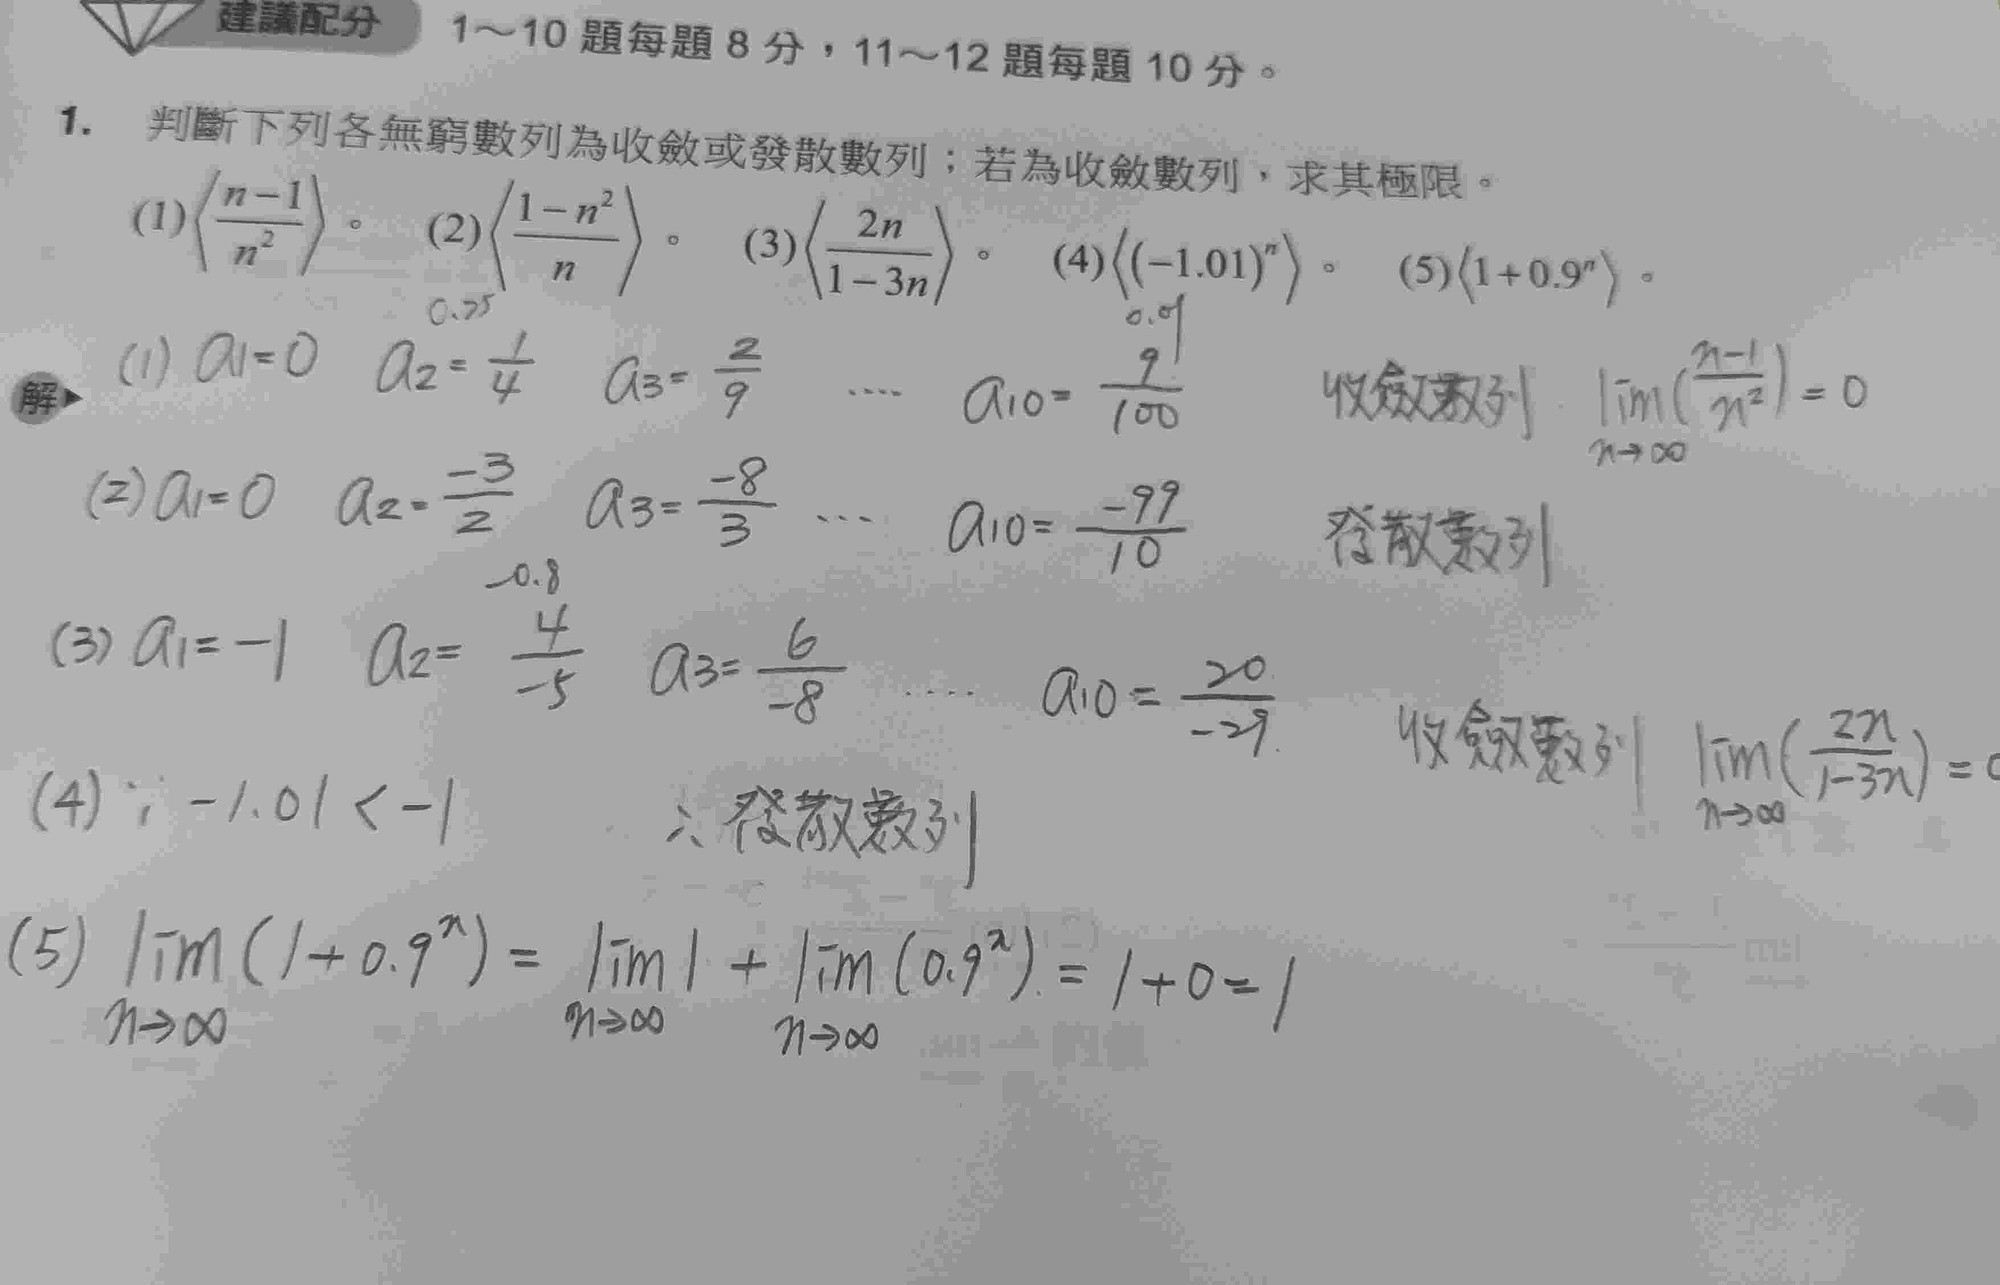 建議配分 1～10 題每題 8 分，11～12 題每題 10 分。
1. 判斷下列各無窮數列為收斂或發散數列；若為收斂數列，求其極限。
(1)⟨(n−1)/n²⟩。 (2)⟨(1−n²)/n⟩。 (3)⟨2n/(1−3n)⟩。 (4)⟨(−1.01)ⁿ⟩。 (5)⟨1+0.9ⁿ⟩。
0.25 0.09
解▶ (1) a₁=0 a₂=1/4 a₃=2/9 .... a₁₀=9/100 收斂數列 lim(n→∞)((n−1)/n²)=0
(2) a₁=0 a₂=−3/2 a₃=−8/3 ... a₁₀=−99/10 發散數列
−0.8
(3) a₁=−1 a₂=4/−5 a₃=6/−8 .... a₁₀=20/−29 收斂數列 lim(n→∞)(2n/(1−3n))=0
(4) ∵ −1.01<−1 ∴發散數列
(5) lim(n→∞)(1+0.9ⁿ)=lim(n→∞)1+lim(n→∞)(0.9ⁿ)=1+0=1